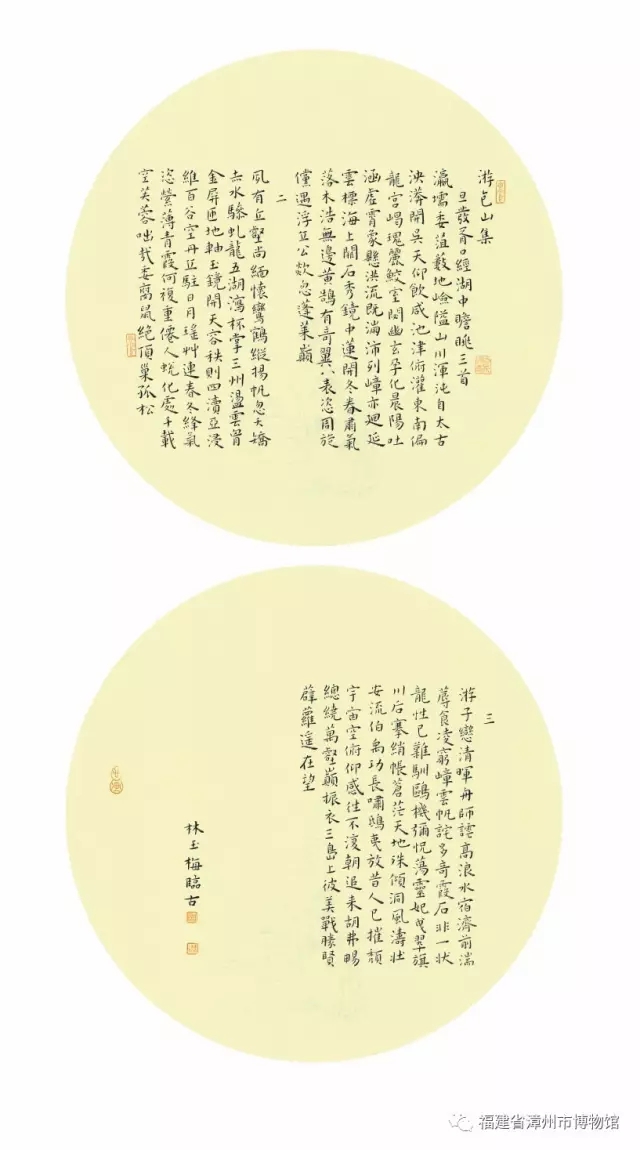 游包山集
旦發胥口經湖中瞻眺三首
瀛壖委菹藪地嶮隘山川渾沌自太古
泱漭開吳天仰飲咸池津俯灌東南偏
龍宮嵑瑰麗鮫室閟幽玄孕化晨陽吐
涵虛霄象懸洪流既淪沛列嶂亦迴延
雲標海上關石秀鏡中蓮開冬春肅氣
落木浩無邊黃鵠有奇翼八表恣周旋
僮遇浮丘公欻忽蓬萊巔
二
夙有丘壑尚緬懷鸞鶴縱揚帆忽夭矯
去水驂虬龍五湖瀉杯掌三州盪雲胷
金屏匝地軸玉鏡開天容秩則四瀆亞浸
維百谷空丹丘駐日月瑤艸連春冬絳氣
恣縈薄青霞何複重僊人蛻化處千載
空芙蓉咄哉委腐鼠絕頂巢孤松
三
游子戀清暉舟師謹高浪水宿濟前湍
蓐食凌窮嶂雲帆詫多奇霞石非一狀
龍性已難馴鷗機彌怳蕩靈妃曳翠旗
川后搴綃帳蒼茫天地殊傾洞風濤壯
安流伯禹功長嘯鴟夷放昔人已摧頹
宇宙空俯仰感往不復朝追來胡弗暢
總繞萬壑巔振衣三島上彼美戰勝賢
薜蘿遥在望
林玉梅臨古
福建省漳州市博物馆